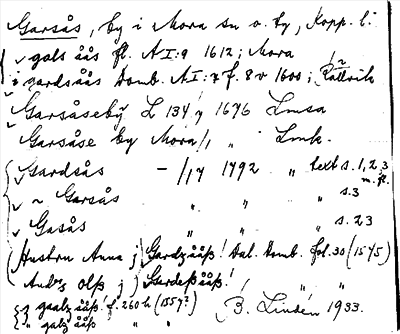 Garsås, by i Mora sn o. ty, Kopp. l:
gals åås fl. AI:9 1612; Mora
i gardsåås Domb. AI:7 f. 8v 1600; Rättvik
Garsåseby L 134/7 1676 Lmsa
Garsåse by Mora/1 " Lmk.
Gardsås – /17 1792 " text s. 1, 2, 3 m. fl.
~ Garsås " " " s.3
Gasås " " " s. 23
(Hustru Anna j) Gardzååß! Dal. Domb. fol. 30 (1545)
Anderß olß j) Gardeßååß! " "
gaalz ååß! f. 260 b (1557?)
" galz ååß " "
B. Lindén 1933.